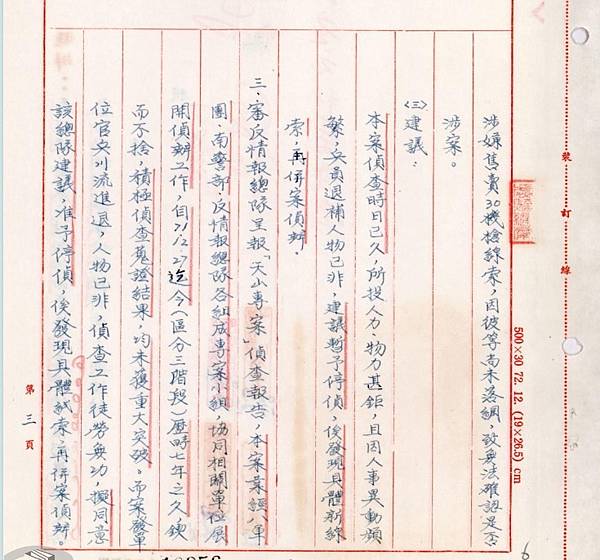 涉嫌售賣30機槍線索，因彼等尚未落網，致無法確認是否
涉案。
〈三〉建議：
本案偵查時日已久，所投人力、物力甚鉅，且因人事異動頻
繁，兵員退補人物已非，建議暫予停偵，俟發現具體新線
索，再併案偵辦。
三、審反情報總隊呈報「天山專案」偵查報告，本案業經八軍
團、南警部、反情報總隊各組成專案小組，協同相關單位展
開偵辦工作，自71/2.27迄今（區分三階段）歷時七年之久鍥
而不捨，積極偵查蒐證結果，均未獲重大突破。而案發單
位官兵川流進退，人物已非，偵查工作徒勞無功，擬同意
該總隊建議，准予停偵，俟發現具體線索，再併案偵辦。
第三頁
裝訂線
500×30 72. 12. (19×26.5) cm
6